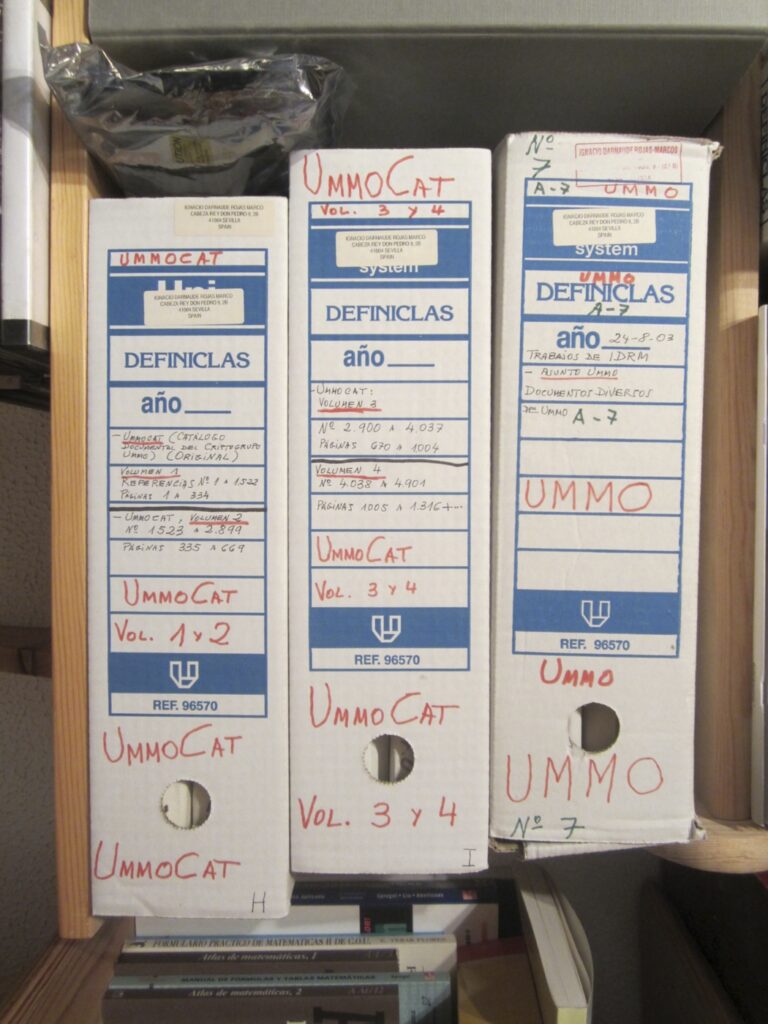 IGNACIO DARNAUDE ROJAS MARCO
CABEZA REY DON PEDRO 9, 2B
41004 SEVILLA
SPAIN
UMMOCAT
Uni
IGNACIO DARNAUDE ROJAS MARCO
CABEZA REY DON PEDRO 9, 2B
41004 SEVILLA
SPAIN
DEFINICLAS
año
- UMMOCAT (CATÁLOGO
DOCUMENTAL DEL CRIPTOGRUPO
UMMO) (ORIGINAL)
VOLUMEN 1
REFERENCIAS Nº 1 A 1522
PÁGINAS 1 A 334
- UMMOCAT, VOLUMEN 2
Nº 1523 A 2.899
PÁGINAS 335 A 669
UMMOCAT
VOL. 1 Y 2
REF. 96570
UMMOCAT
UMMOCAT
H
UMMOCAT
VOL. 3 Y 4
IGNACIO DARNAUDE ROJAS MARCO
CABEZA REY DON PEDRO 9, 2B
41004 SEVILLA
SPAIN
system
DEFINICLAS
año
- UMMOCAT:
VOLUMEN 3
Nº 2.900 A 4.037
PÁGINAS 670 A 1004
VOLUMEN 4
Nº 4.038 A 4.901
PÁGINAS 1005 A 1.316 +...
UMMOCAT
VOL. 3 Y 4
REF. 96570
UMMOCAT
VOL. 3 Y 4
I
Nº
7
IGNACIO DARNAUDE ROJAS-MARCOS
A-7 UMMO
IGNACIO DARNAUDE ROJAS MARCO
CABEZA REY DON PEDRO 9, 2B
41004 SEVILLA
SPAIN
system
UMMO
DEFINICLAS
A-7
año 24-8-03
TRABAJOS DE IDRM
- ASUNTO UMMO
DOCUMENTOS DIVERSOS
DE UMMO A-7
UMMO
REF. 96570
UMMO
UMMO
Nº 7
FORMULARIO PRACTICO DE MATEMATICAS II DE C.O.U.
Atlas de matemáticas, 1
MANUAL DE FORMULAS Y TABLAS MATEMÁTICAS
Atlas de matemáticas, 2